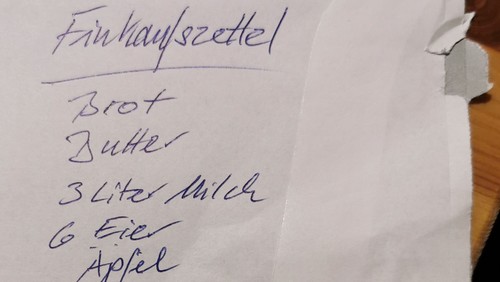 Einkaufszettel
Brot
Butter
3 Liter Milch
6 Eier
Äpfel